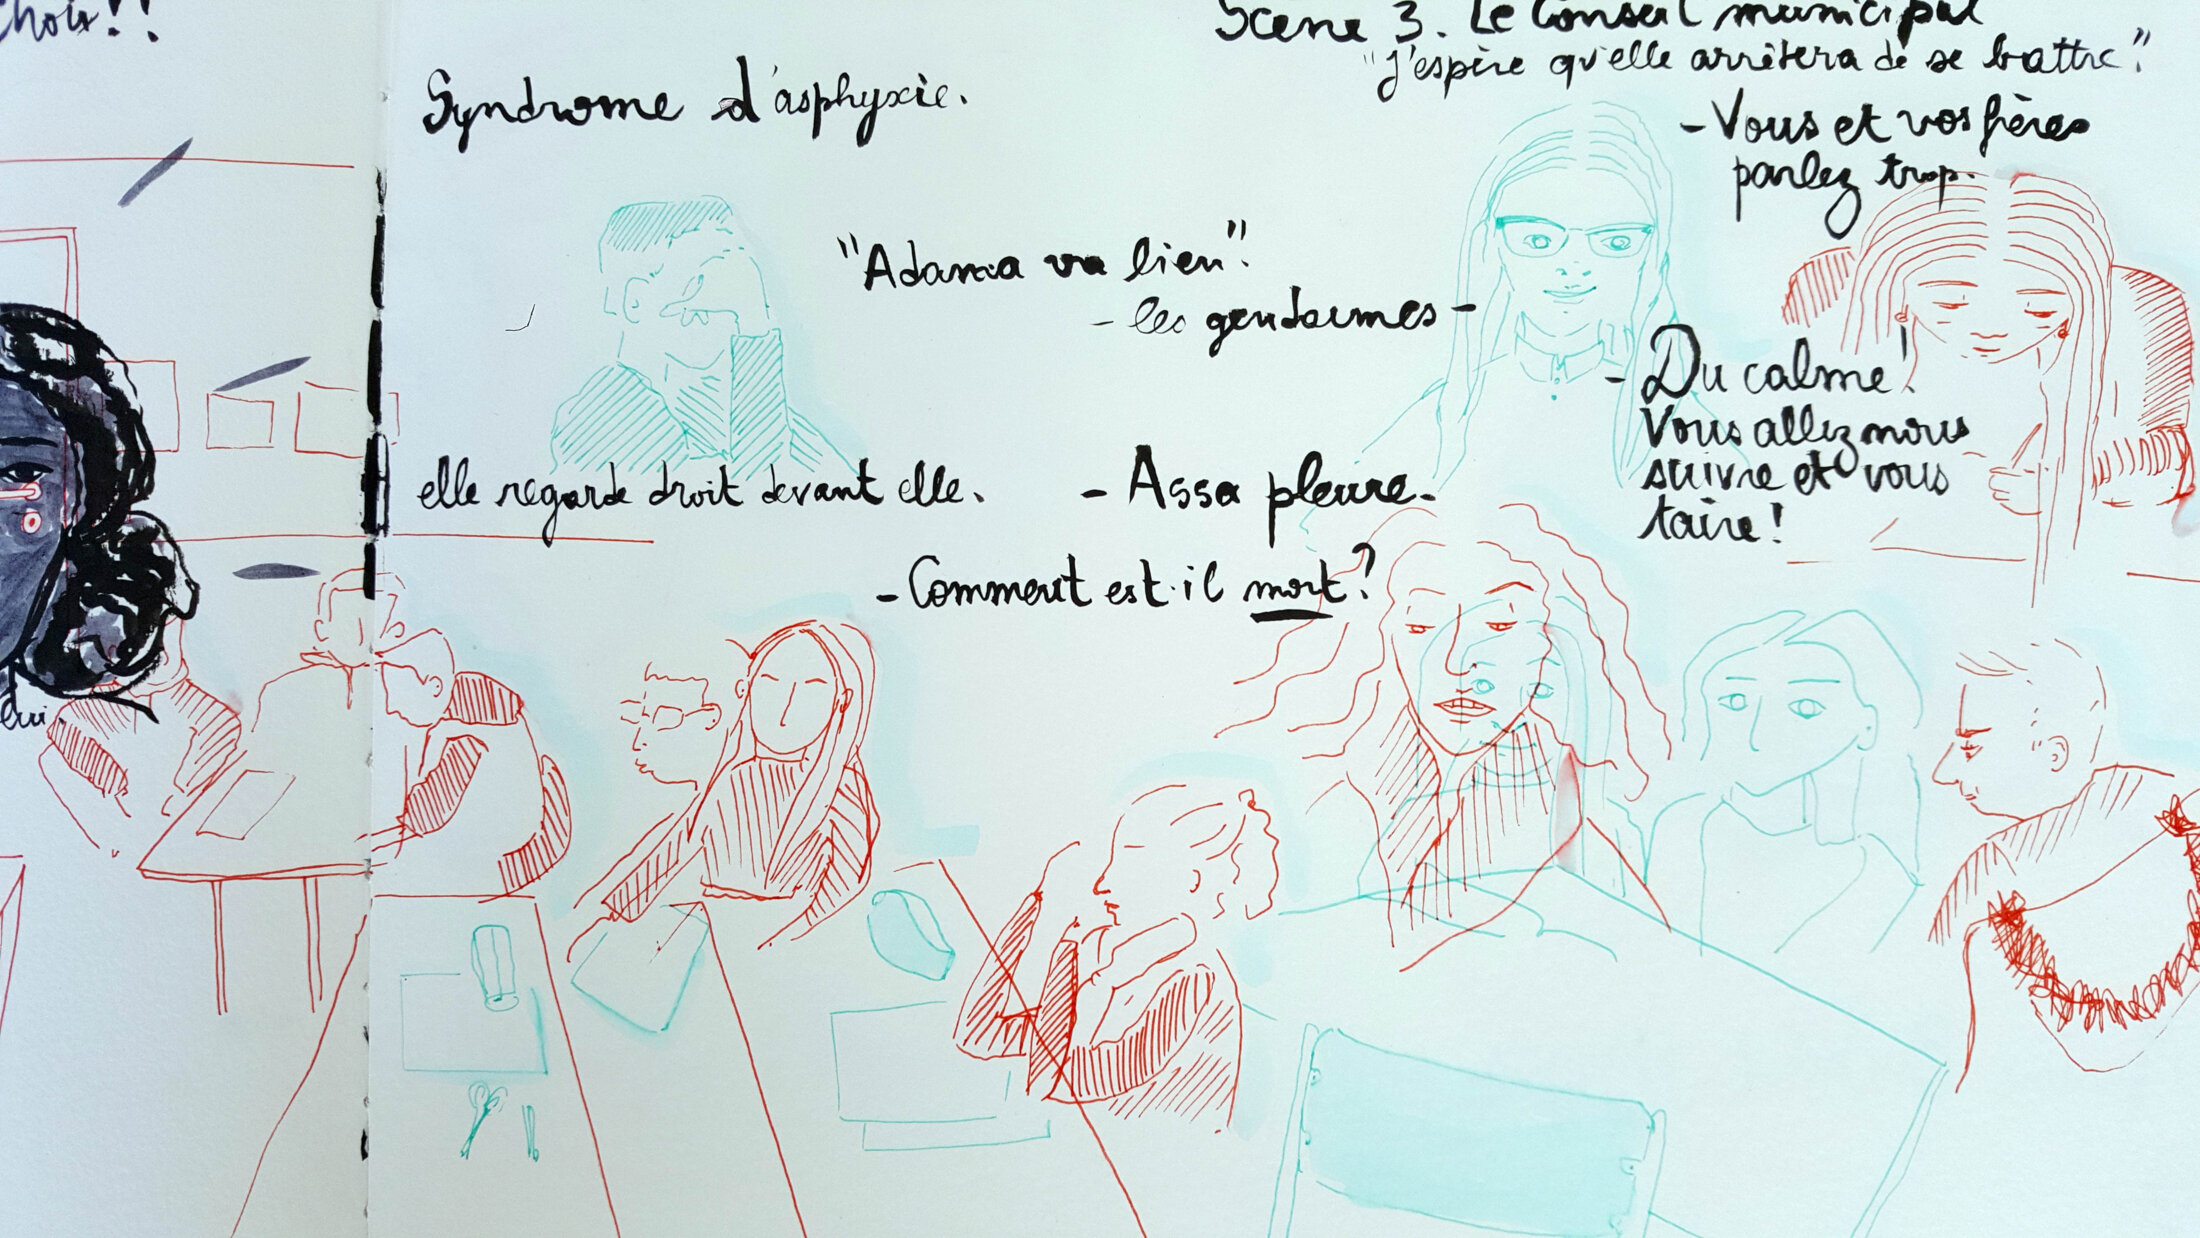 choix!!
Scène 3. Le Conseil municipal
"J'espère qu'elle arrêtera de se battre".
- Vous et vos frères
parlez trop.
Syndrome d'asphyxie.
"Adama va bien".
- les gendarmes -
- Du calme!
Vous allez nous
suivre et vous
taire!
elle regarde droit devant elle.
- Assa pleure.
- Comment est-il mort?